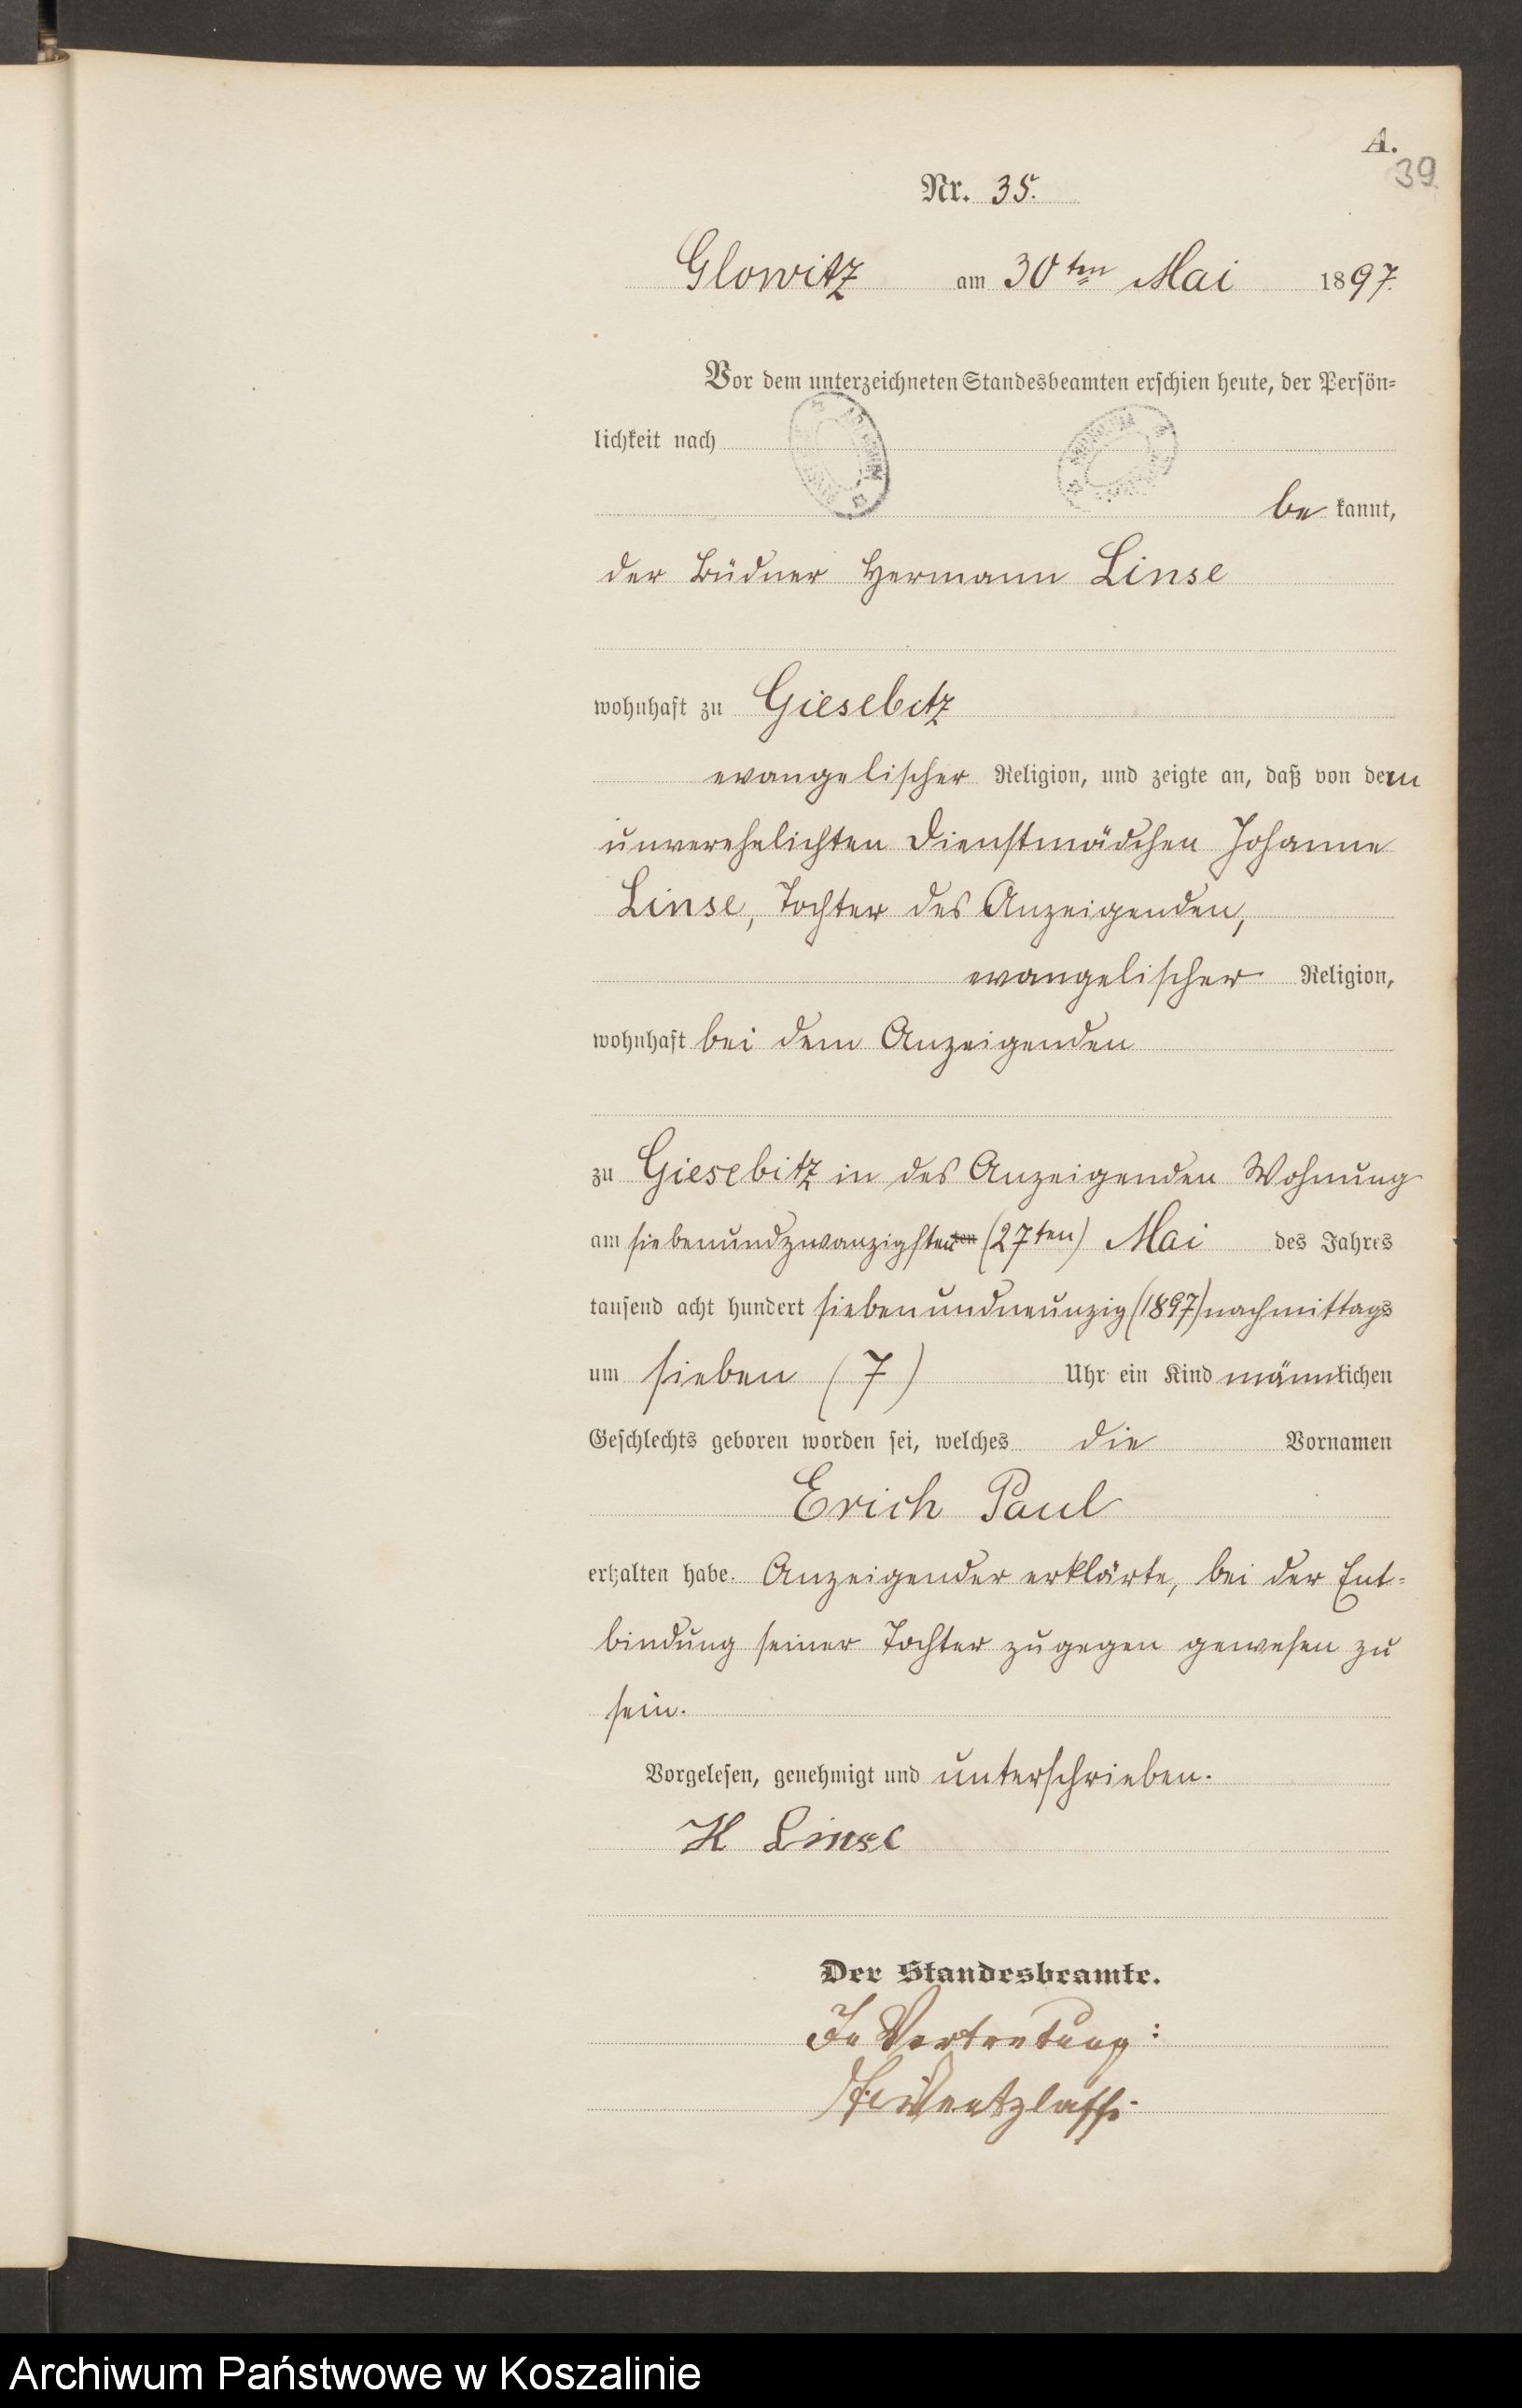 A.
39
Nr. 35.
Glowitz am 30ten Mai 1897.
Vor dem unterzeichneten Standesbeamten erschien heute, der Persön=
lichkeit nach
be kannt,
der Büdner Hermann Linse
wohnhaft zu Giesebitz
evangelischer Religion, und zeigte an, daß von dem
unverehelichten Dienstmädchen Johanne
Linse, Tochter des Anzeigenden,
evangelischer Religion,
wohnhaft bei dem Anzeigenden
zu Giesebitz in des Anzeigenden Wohnung
am siebenundzwanzigsten ten (27ten) Mai des Jahres
tausend acht hundert siebenundneunzig (1897) nachmittags
um sieben (7) Uhr ein Kind männlichen
Geschlechts geboren worden sei, welches die Vornamen
Erich Paul
erhalten habe. Anzeigender erklärte, bei der Ent=
bindung seiner Tochter zugegen gewesen zu
sein.
Vorgelesen, genehmigt und unterschrieben.
H Linse
Der Standesbeamte.
In Vertretung:
Wentzlaff.
Archiwum Państwowe w Koszalinie